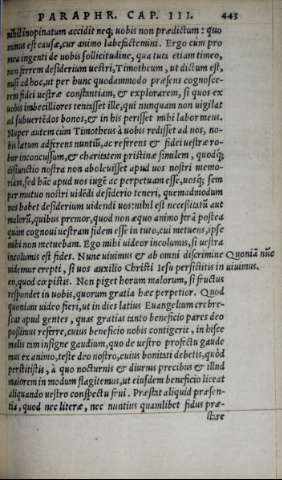 PARAPHR. CAP. III. 443
nihil inopinatum accidit neq; uobis non prædictum: quo
minus est causæ, cur animo labefactemini. Ergo cum pro
mea ingenti de uobis sollicitudine, qua tuis etiam timeo,
non ferrem desiderium uestri, Timotheum, ut dictum est,
misi ad hoc, ut per hunc quodammodo præsens cognosce-
rem fidei uestræ constantiam, & explorarem, si quos ex
uobis imbecilliores tentasset ille, qui nunquam non uigilat
ad subuertēdos bonos, & in his perisset mihi labor meus.
Nuper autem cum Timotheus à uobis redisset ad nos, no-
bis lætum adferens nuntiū, ac referens & fidei uestræ ro-
bur inconcussum, & charitatem pristinæ similem, quodq;
disiunctio nostra non aboleuisset apud uos nostri memo-
riam, sed hāc apud uos iugē ac perpetuam esse, uosq; sem
per mutuo nostri uidēdi desiderio teneri, quemadmodum
nos habet desiderium uidendi uos: nihil est necessitatū aut
malorū, quibus premor, quod non æquo animo ferā postea
quàm cognoui uestram fidem esse in tuto, cui metuens, ipse
mihi non metuebam. Ego mihi uideor incolumis, si uestra
incolumis est fides. Nunc uiuimus & ab omni discrimine Quoniā nūc
uidemur erepti, si uos auxilio Christi Iesu persistitis in uiuimus.
eo, quod cœpistis. Non piget horum malorum, si fructus
respondet in uobis, quorum gratia hæc perpetior. Quod
quoniam uideo fieri, ut in dies latius Euangelium crebre-
scat apud gentes, quas gratias tanto beneficio pares deo
possimus referre, cuius beneficio nobis contigerit, in hisce
malis tam insigne gaudium, quo de uestro profectu gaude
mus ex animo, teste deo nostro, cuius bonitati debetis, quòd
perstitistis, à quo nocturnis & diurnis precibus & illud
maiorem in modum flagitemus, ut eiusdem beneficio liceat
aliquando uestro conspectu frui. Præstat aliquid præsen-
tia, quod nec literæ, nec nuntius quamlibet fidus præ-
stare